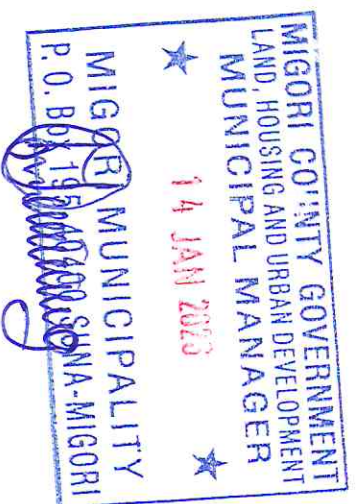 MIGORI COUNTY GOVERNMENT
LAND, HOUSING AND URBAN DEVELOPMENT
MUNICIPAL MANAGER
14 JAN 2023
MIGORI MUNICIPALITY
P. O. Box 195-40400 SUNA-MIGORI